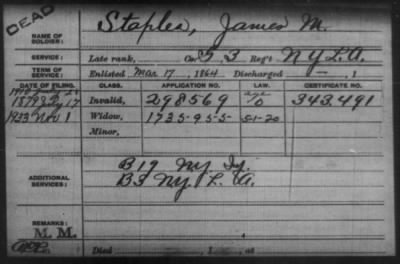 DEAD
NAME OF SOLDIER: Staples, James M.
SERVICE: Late rank, Co. 3 Reg't N Y L. A.
TERM OF SERVICE: Enlisted Mar 17, 1864 Discharged — , 1
DATE OF FILING. CLASS. APPLICATION NO. LAW. CERTIFICATE NO.
1879 17 Invalid, 298569 343,491
1933 Nov 1 Widow, 1735-955 5-1-20
Minor,
ADDITIONAL SERVICES: B 19 NY Inf.
B 3 NY. L. A.
REMARKS:
M. M.
Died , 1 , at